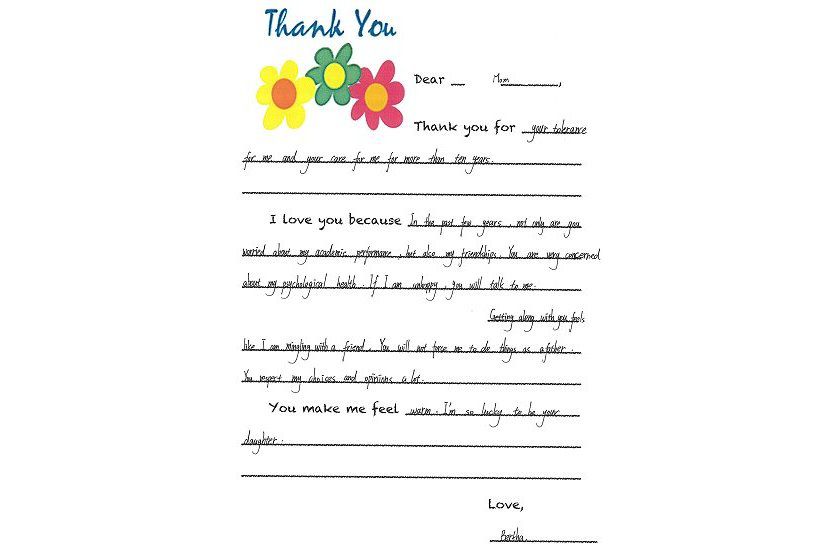 Thank You
Dear Mom,
Thank you for your tolerance
for me and your care for me for more than ten years.
I love you because In the past few years, not only are you
worried about my academic performance, but also my friendships. You are very concerned
about my psychological health. If I am unhappy, you will talk to me.
Getting along with you feels
like I am mingling with a friend. You will not force me to do things as a father.
You respect my choices and opinions a lot.
You make me feel warm. I'm so lucky to be your
daughter.
Love,
Bertha.